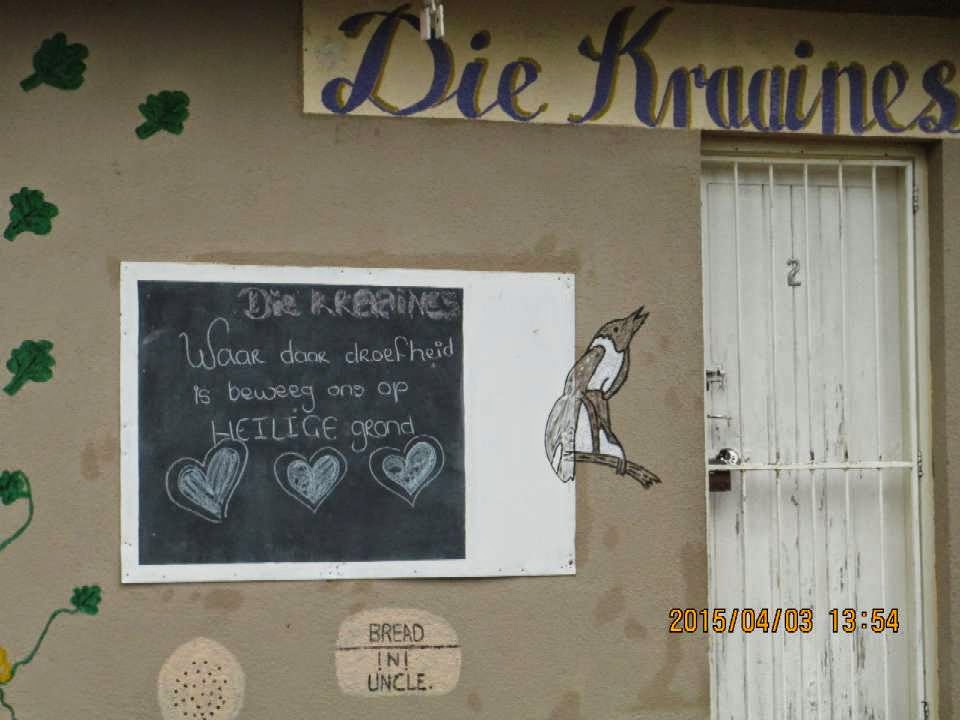 Die Kraaines
2
Die KRAAINES
Waar daar droefheid
is beweeg ons op
HEILIGE grond
BREAD
INI
UNCLE.
2015/04/03 13:54